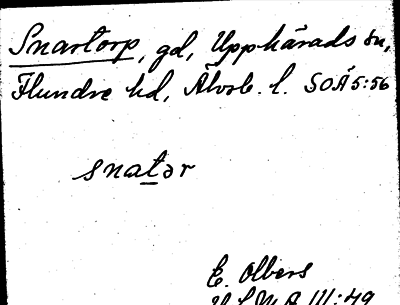 Snartorp, gd, Upphärads sn,
Flundre hd, Älvsb. l. SOÄ 5:56
snatər
E. Olbers
III:49